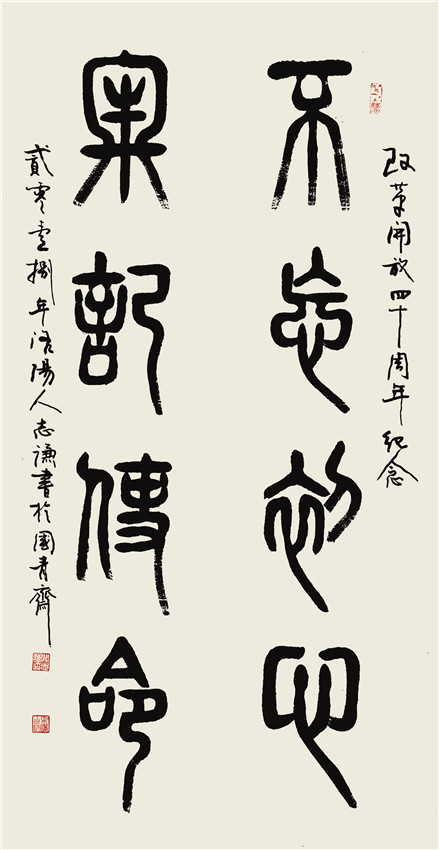 改革開放四十周年纪念
不忘初心
牢記使命
貳零壹捌年洛陽人志謙書於國青齋